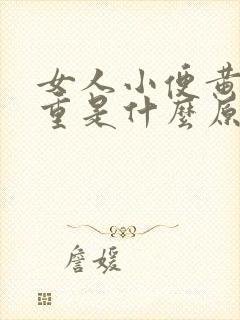 女人小便黄
重是什麼原
詹媛